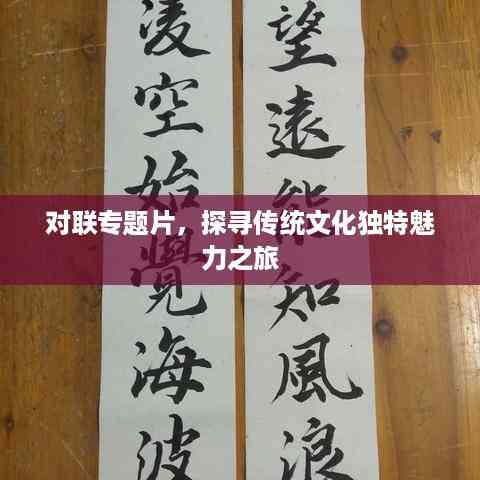 望遠能知風浪
凌空始覺海波
对联专题片，探寻传统文化独特魅
力之旅